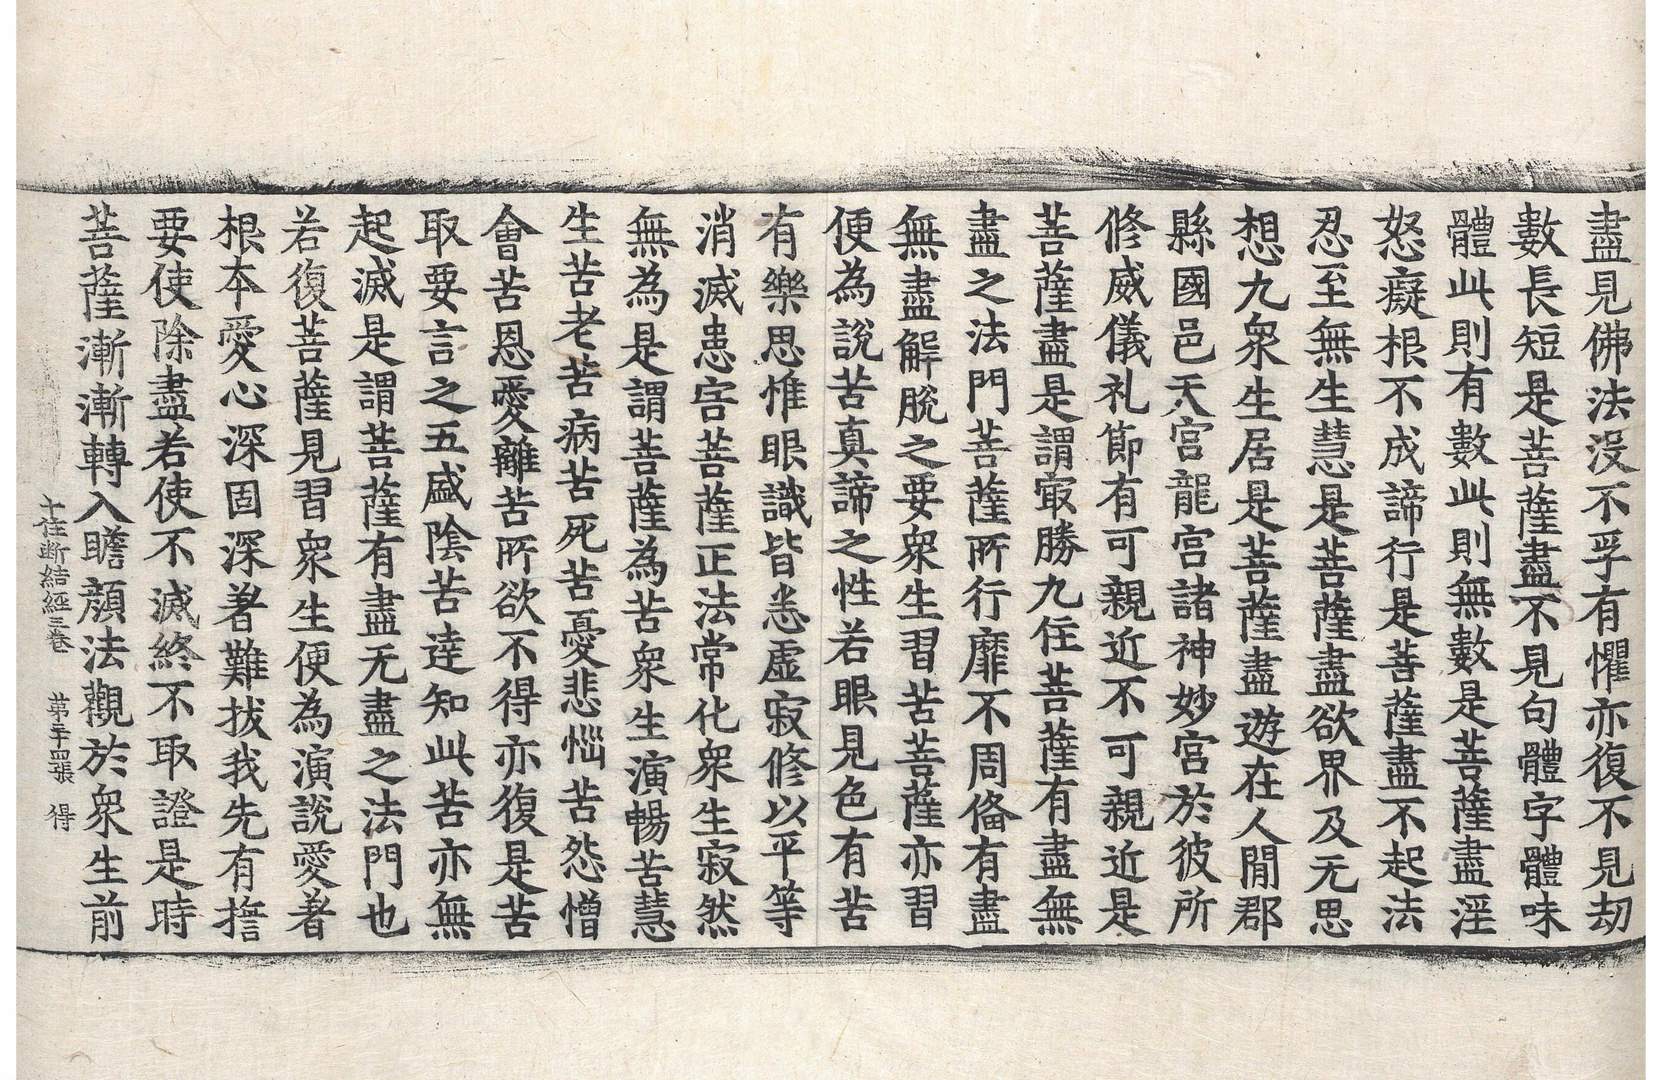 盡見佛法沒不孚有懼亦復不見劫
數長短是菩薩盡不見句體字體味
體此則有數此則無數是菩薩盡淫
怒癡根不成諦行是菩薩盡不起法
忍至無生慧是菩薩盡欲界及无思
想九衆生居是菩薩盡遊在人閒郡
縣國邑天宮龍宮諸神妙宮於彼所
修威儀礼節有可親近不可親近是
菩薩盡是謂㝡勝九住菩薩有盡無
盡之法門菩薩所行靡不周俻有盡
無盡解脫之要衆生習苦菩薩亦習
便為說苦真諦之性若眼見色有苦
有樂思惟眼識皆悉虛寂修以平等
消滅患害菩薩正法常化衆生寂然
無為是謂菩薩為苦衆生演暢苦慧
生苦老苦病苦死苦憂悲惱苦怨憎
會苦恩愛離苦所欲不得亦復是苦
取要言之五盛陰苦達知此苦亦無
起滅是謂菩薩有盡无盡之法門也
若復菩薩見習衆生便為演說愛著
根本愛心深固深著難拔我先有擔
要使除盡若使不滅終不取證是時
菩薩漸漸轉入瞻顔法觀於衆生前
十住断結經三卷 第二十四張 得